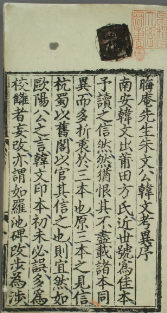 晦庵先生朱文公韓文考異序
南安韓文出莆田方氏近世號為佳本
予讀之信然然猶恨其不盡載諸本同
異而多折衷於三本也原三本之見信
杭蜀以舊閣以官其信之也則宜然如
歐陽公之言韓文印本初未必誤多為
校讎者妄改亦謂如羅池碑改步為涉